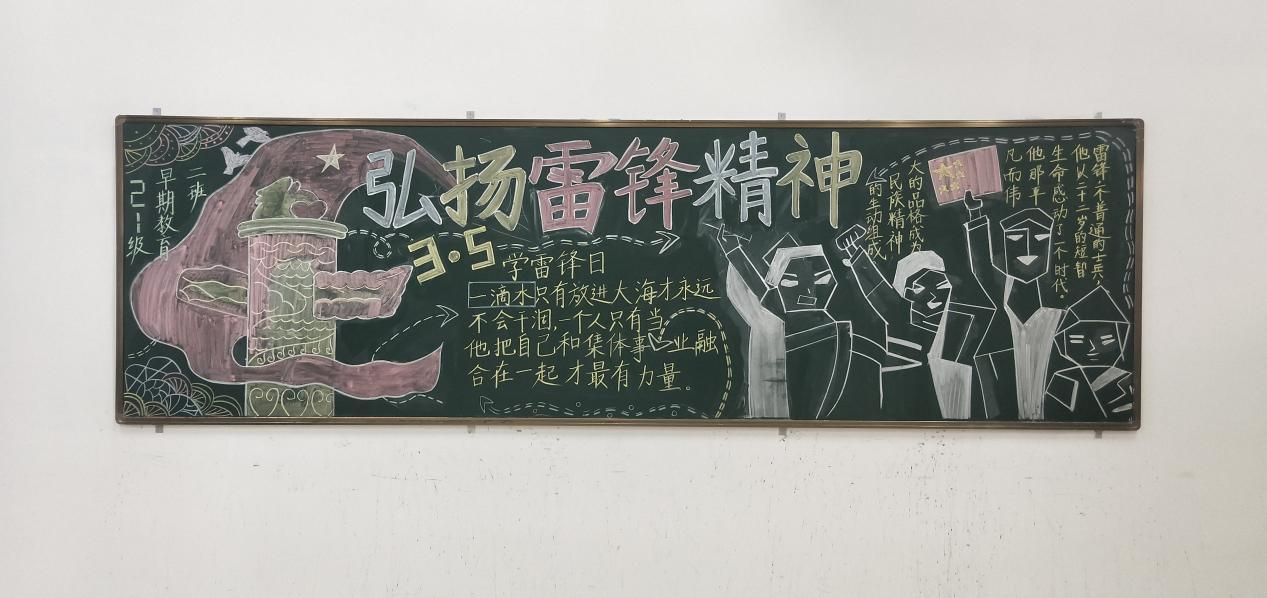 21级
早期教育
二班
弘扬雷锋精神
3.5
学雷锋日
一滴水只有放进大海才永远
不会干涸,一个人只有当
他把自己和集体事业融
合在一起才最有力量。
雷锋,一个普通的士兵,
他以二十二岁的短暂
生命感动了一个时代。
他那平
凡而伟
大的品格成为
民族精神
的生动组成